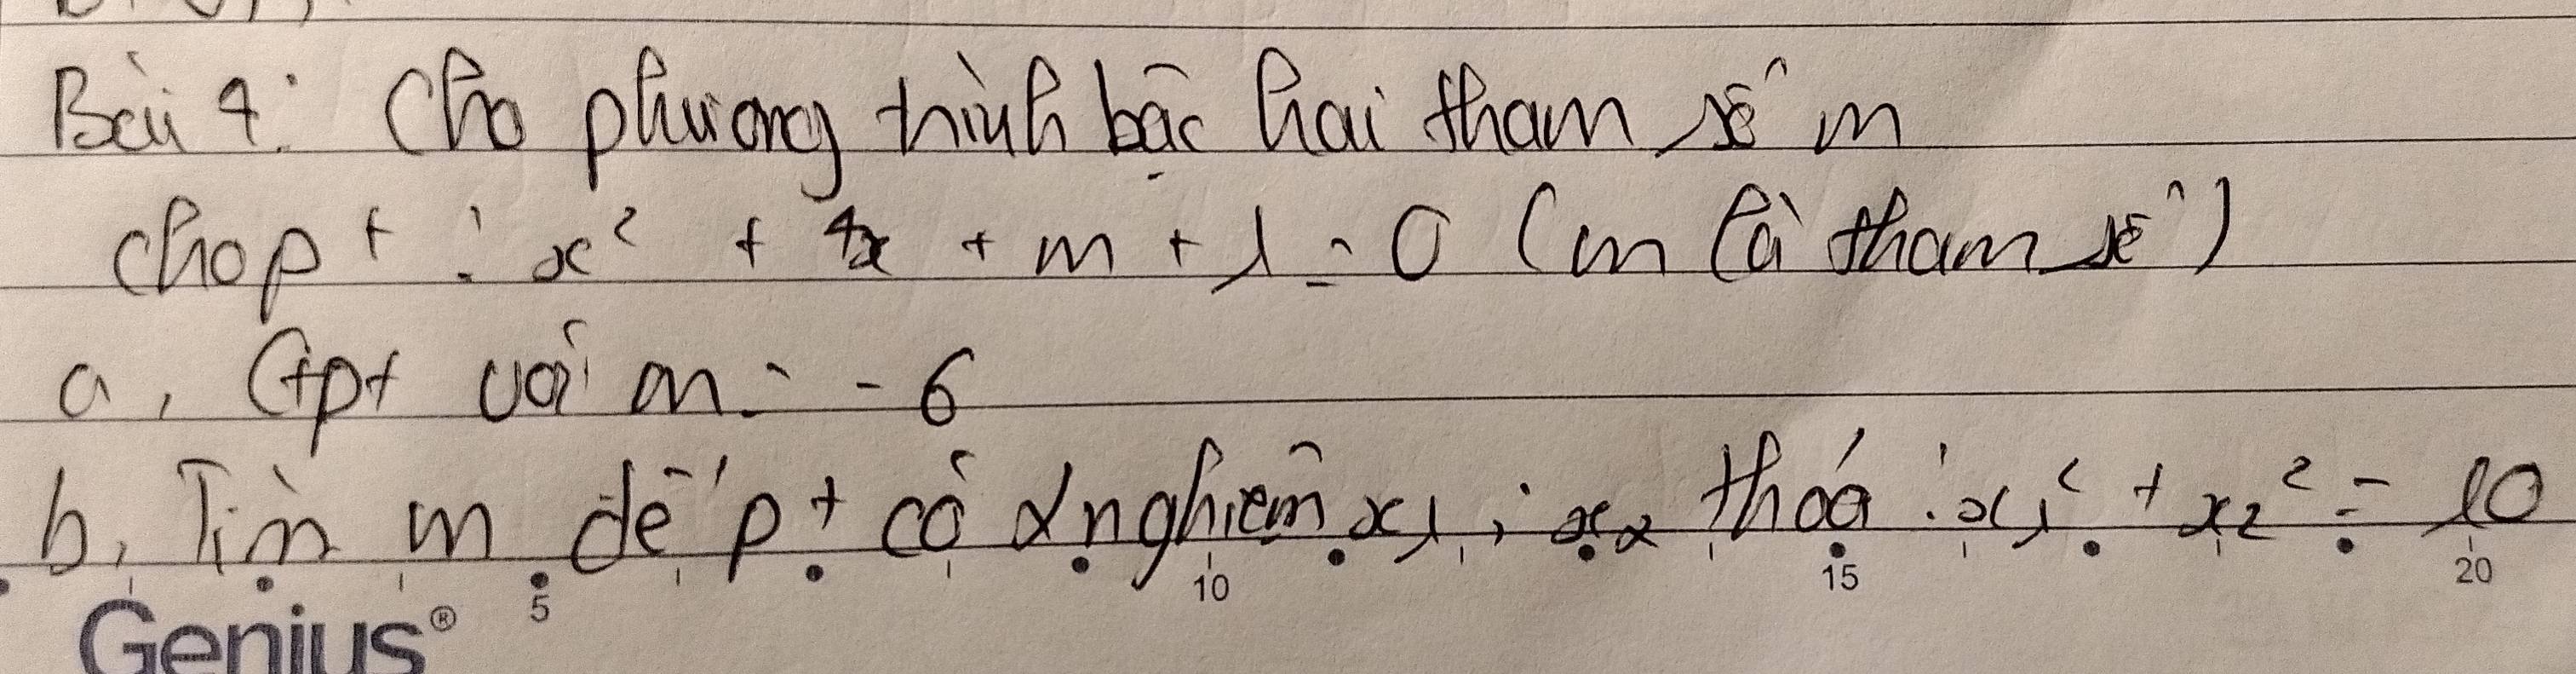 Bài 4: Cho phương trình bậc hai tham số m
Cho pt : x² + 4x + m + 1 = 0 (m là tham số)
a, Gpt với m = -6
b, Tìm m để pt có 2 nghiệm x1 ; x2 thoả : x1² + x2² = 10
5 10 15 20
Genius®